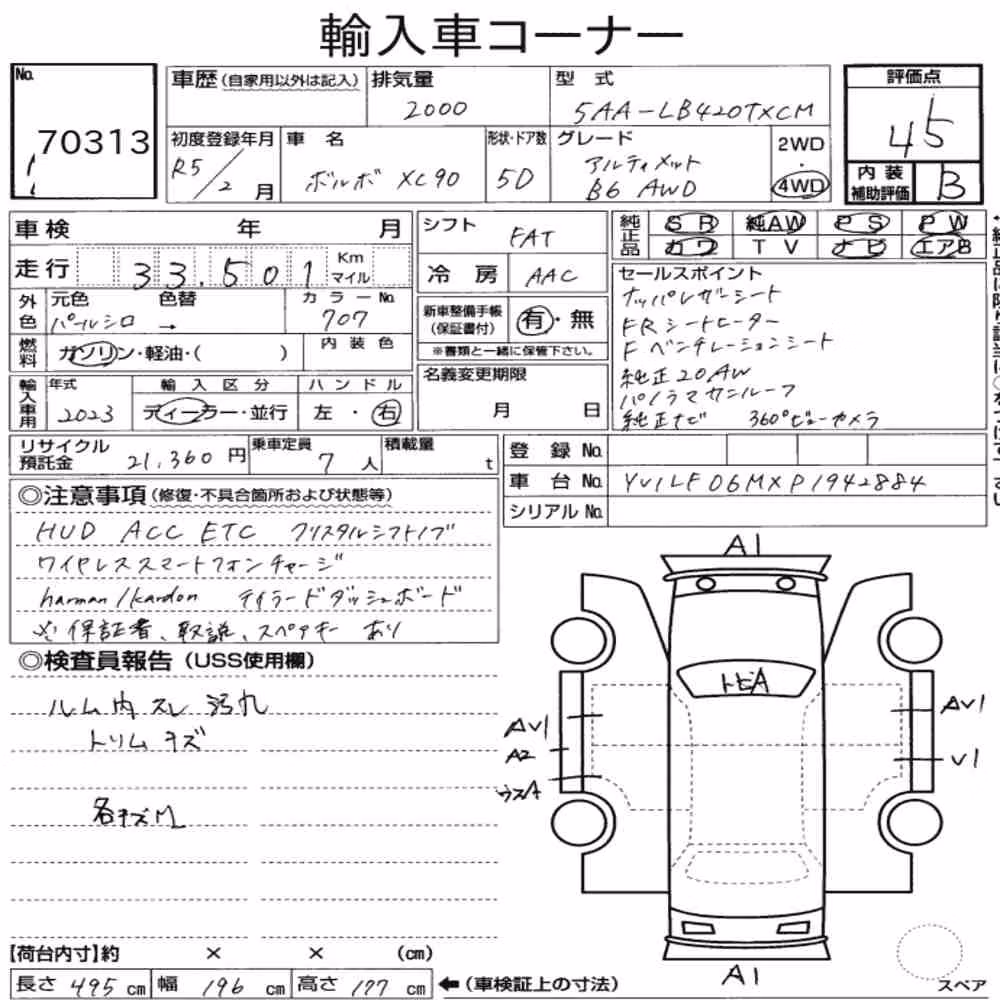 輸入車コーナー
No.
70313
車歴(自家用以外は記入)
排気量
2000
型式
5AA-LB420TXCM
評価点
45
初度登録年月
R5/2月
車名
ボルボ XC90
形状・ドア数
5D
グレード
アルティメット
B6 AWD
2WD
・
4WD
内装
補助評価
B
車検 年 月
シフト
FAT
純正品
SR 純AW PS PW
カワ TV ナビ エアB
走行 33,501 Km
マイル
冷房 AAC
セールスポイント
ナッパレザーシート
FRシートヒーター
Fベンチレーションシート
純正20AW
パノラマサンルーフ
純正ナビ 360°ビューカメラ
外色
元色 色替
パールシロ →
カラーNo.
707
新車整備手帳
(保証書付)
有・無
※書類と一緒に保管下さい。
燃料
ガソリン・軽油・( )
内装色
輸入車用
年式
2023
輸入区分
ディーラー・並行
ハンドル
左・右
名義変更期限
月 日
リサイクル
預託金 21,360円
乗車定員
7人
積載量
t
登録No.
車台No. YV1LF06MXP1942884
シリアルNo.
◎注意事項(修復・不具合箇所および状態等)
HUD ACC ETC クリスタルシフトノブ
ワイヤレススマートフォンチャージ
harman/kardon テイラードダッシュボード
※保証書、取説、スペアキー あり
◎検査員報告(USS使用欄)
ルーム内スレ汚れ
トリムキズ
各キズ
A1
トビA
AV1
A2
ウスA
AV1
V1
A1
【荷台内寸】約 × × (cm)
長さ 495 cm 幅 196 cm 高さ 177 cm
←(車検証上の寸法)
スペア